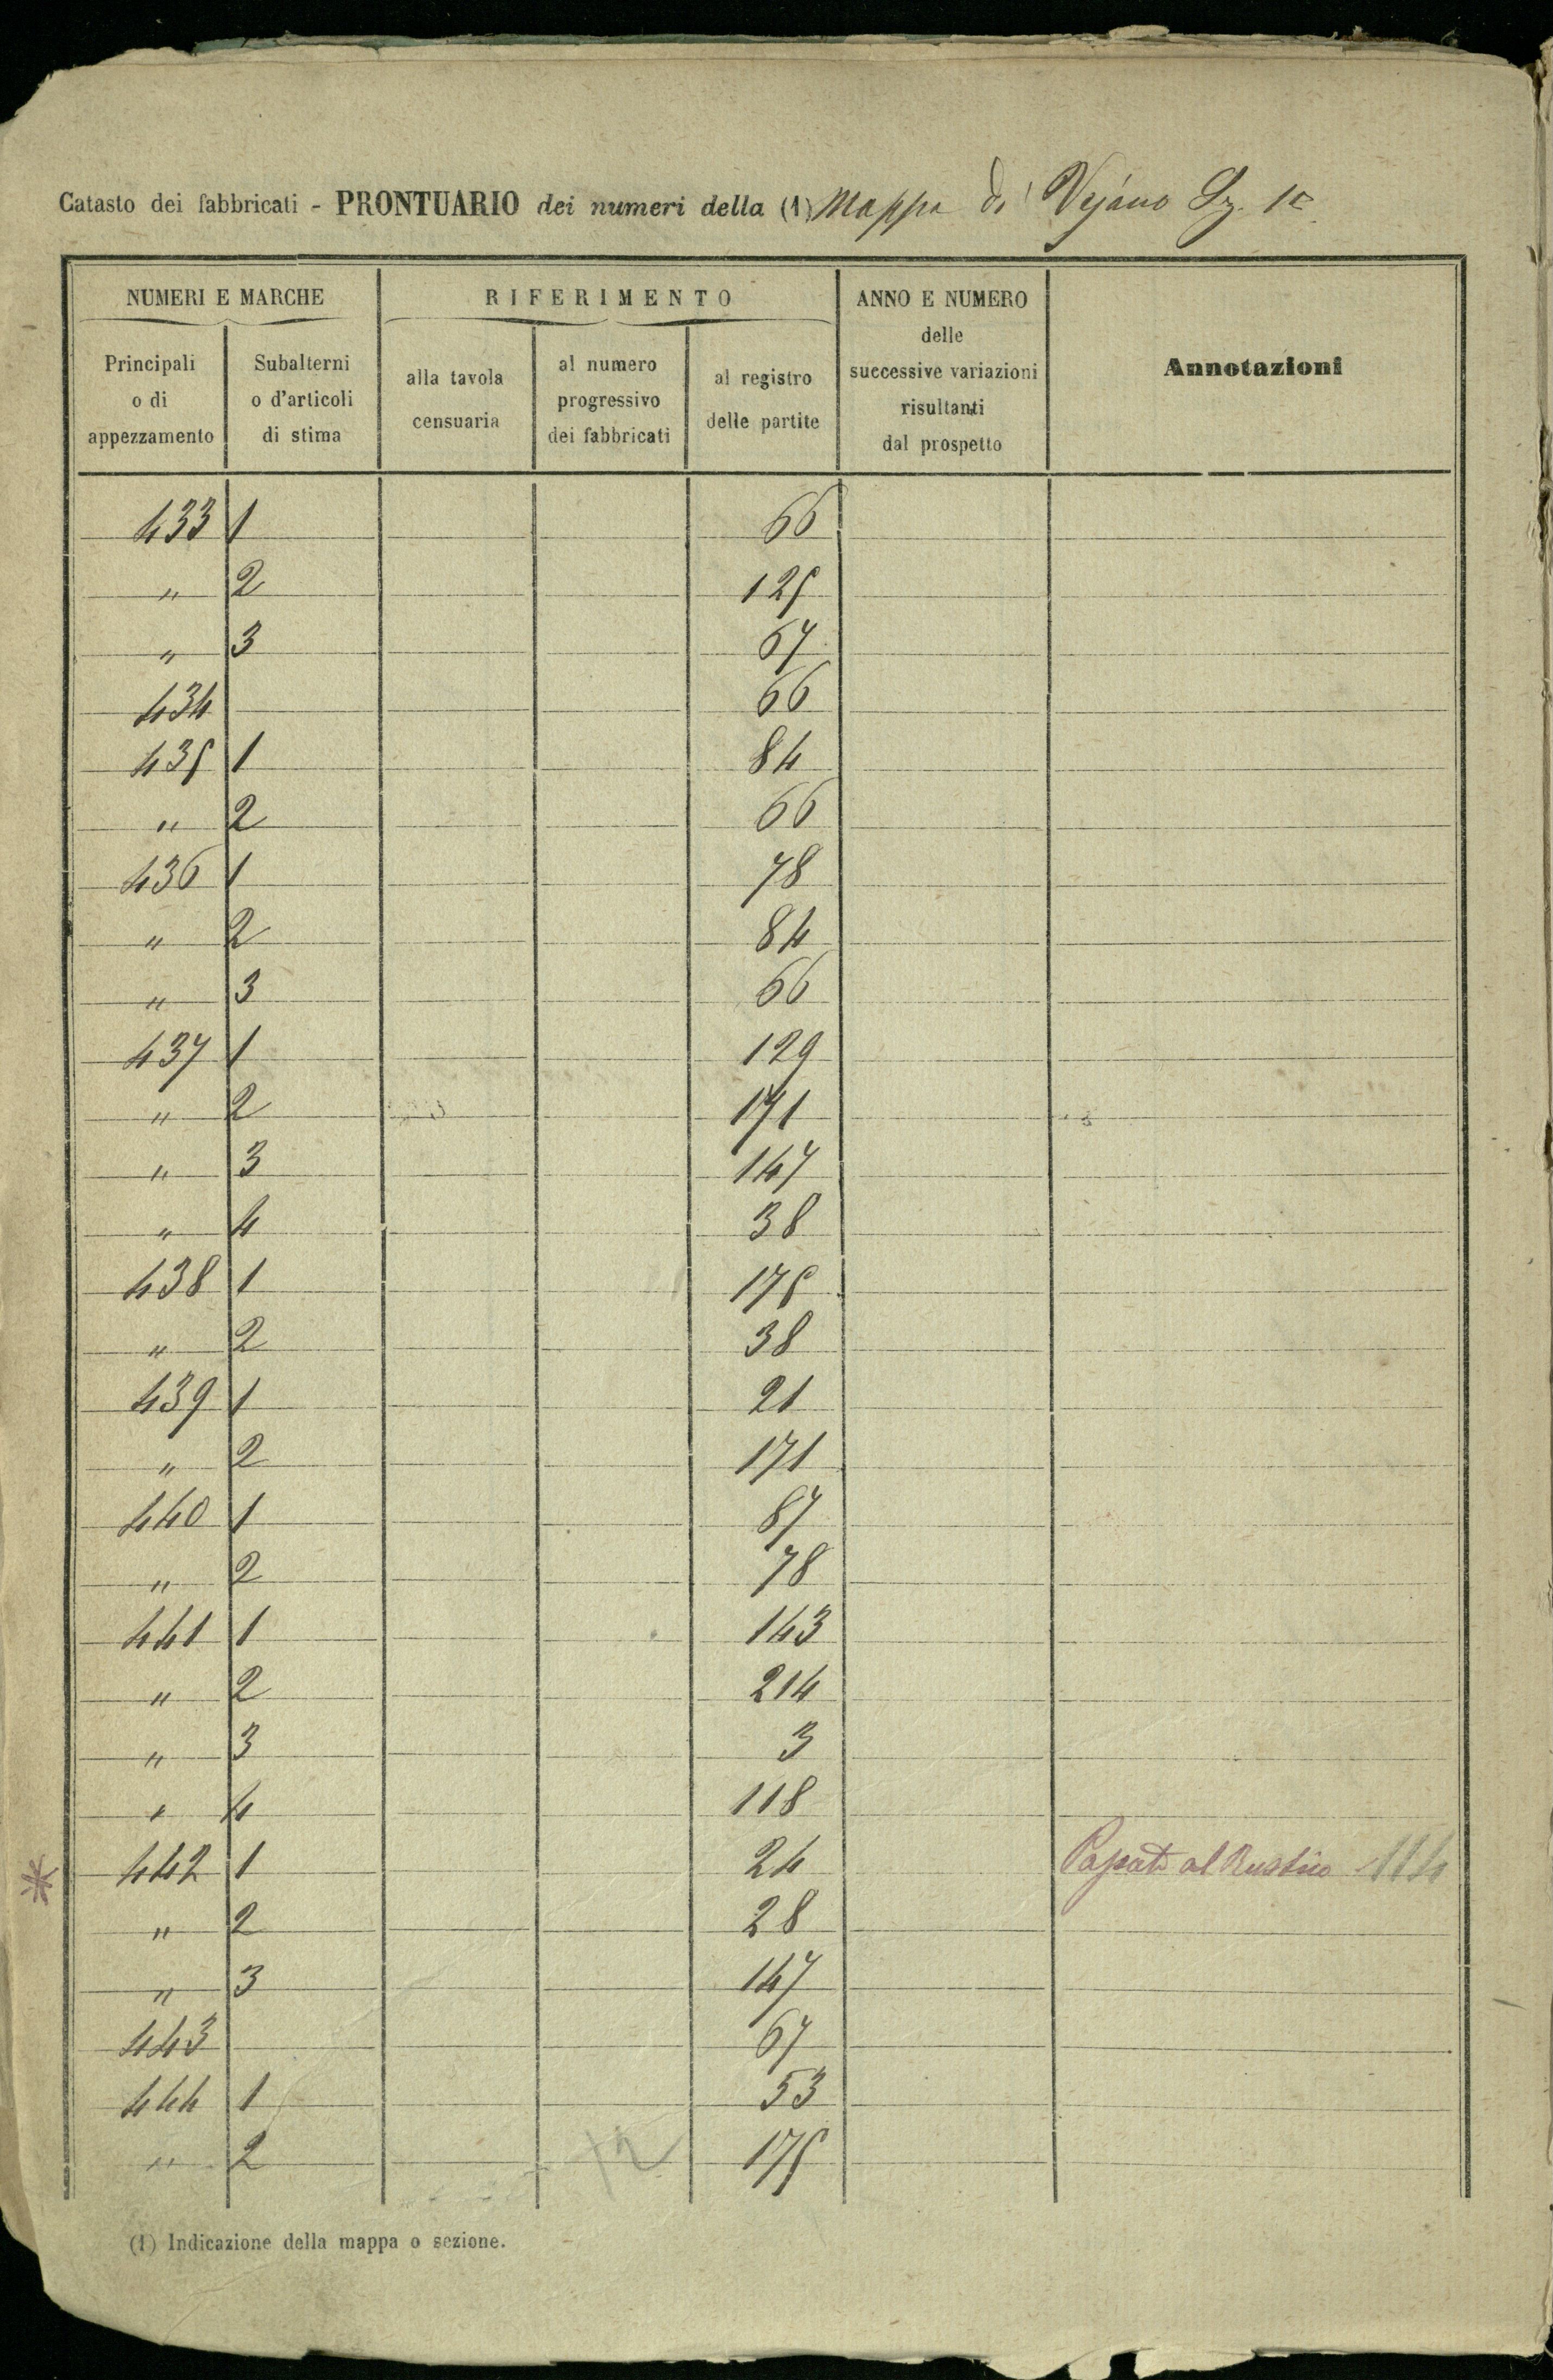 Catasto dei fabbricati - PRONTUARIO dei numeri della (1) Mappa di Vejano Sez. 1a
NUMERI E MARCHE
RIFERIMENTO
ANNO E NUMERO
delle
successive variazioni
risultanti
dal prospetto
Annotazioni
Principali
o di
appezzamento
Subalterni
o d'articoli
di stima
alla tavola
censuaria
al numero
progressivo
dei fabbricati
al registro
delle partite
433 1 66
" 2 125
" 3 67
434 66
435 1 84
" 2 66
436 1 78
" 2 84
" 3 66
437 1 129
" 2 171
" 3 147
" 4 38
438 1 175
" 2 38
439 1 21
" 2 171
440 1 87
" 2 78
441 1 143
" 2 214
" 3 3
" 4 118
* 442 1 24 al Rustico
" 2 28
" 3 147
443 67
444 1 53
" 2 175
(1) Indicazione della mappa o sezione.